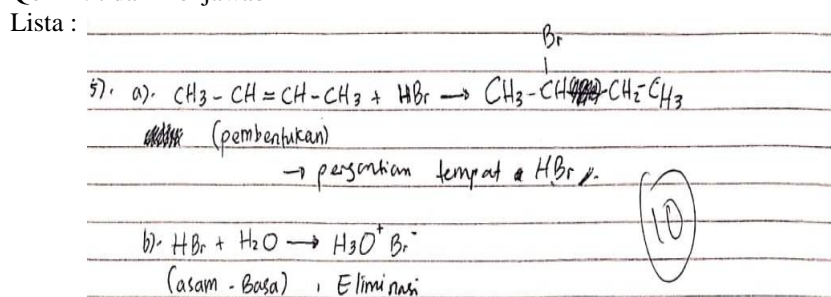 Lista :
Br
|
5). a). CH3 - CH = CH - CH3 + HBr → CH3 - CH - CH2 - CH3
(pembentukan)
→ pergantian tempat HBr
10
b). HBr + H2O → H3O+ Br-
(asam - Basa) , Eliminasi